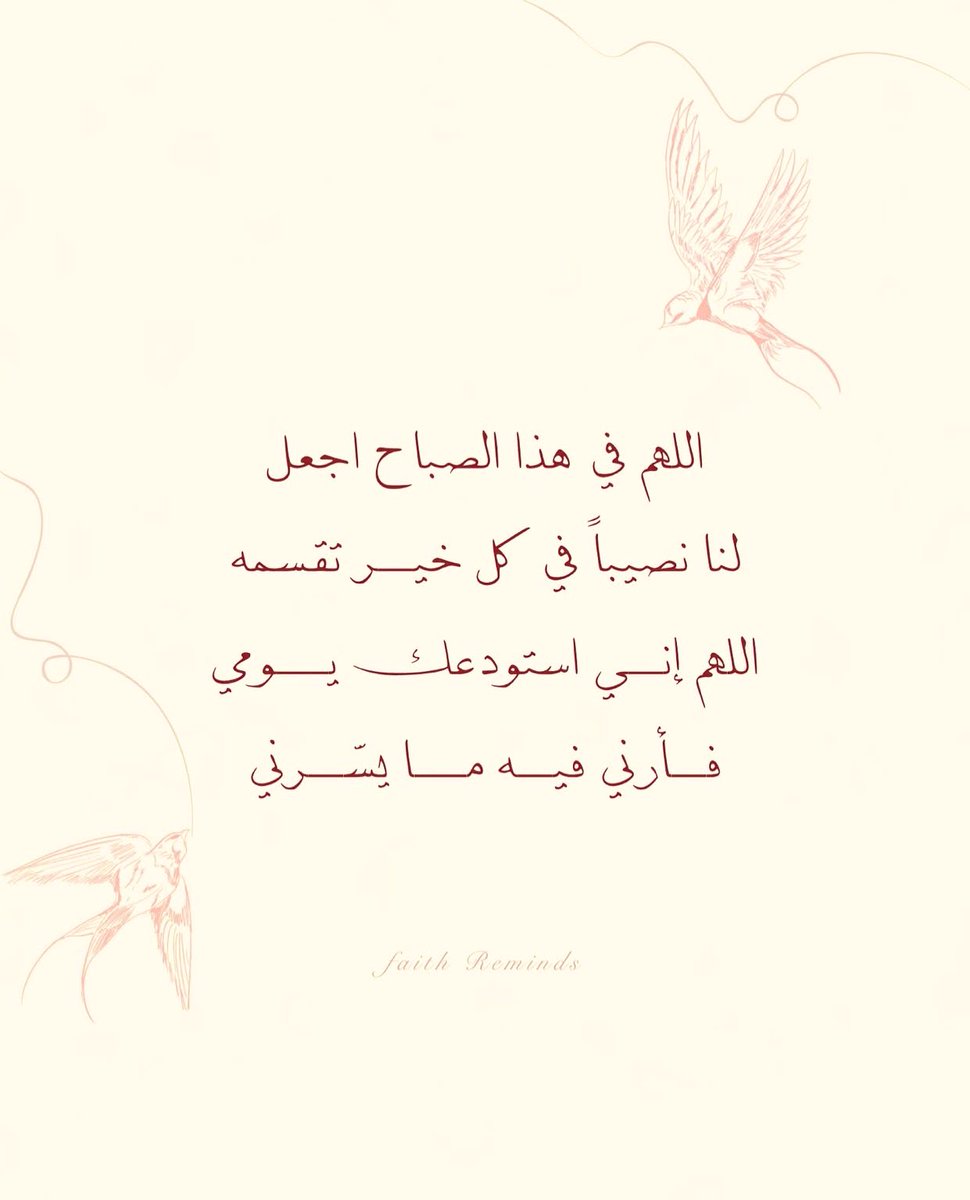 اللهم في هذا الصباح اجعل
لنا نصيباً في كل خيـــر تقسمه
اللهم إنـــي استودعك يـــومي
فـــأرني فيـــه مـــا يسّـــرني
faith Reminds